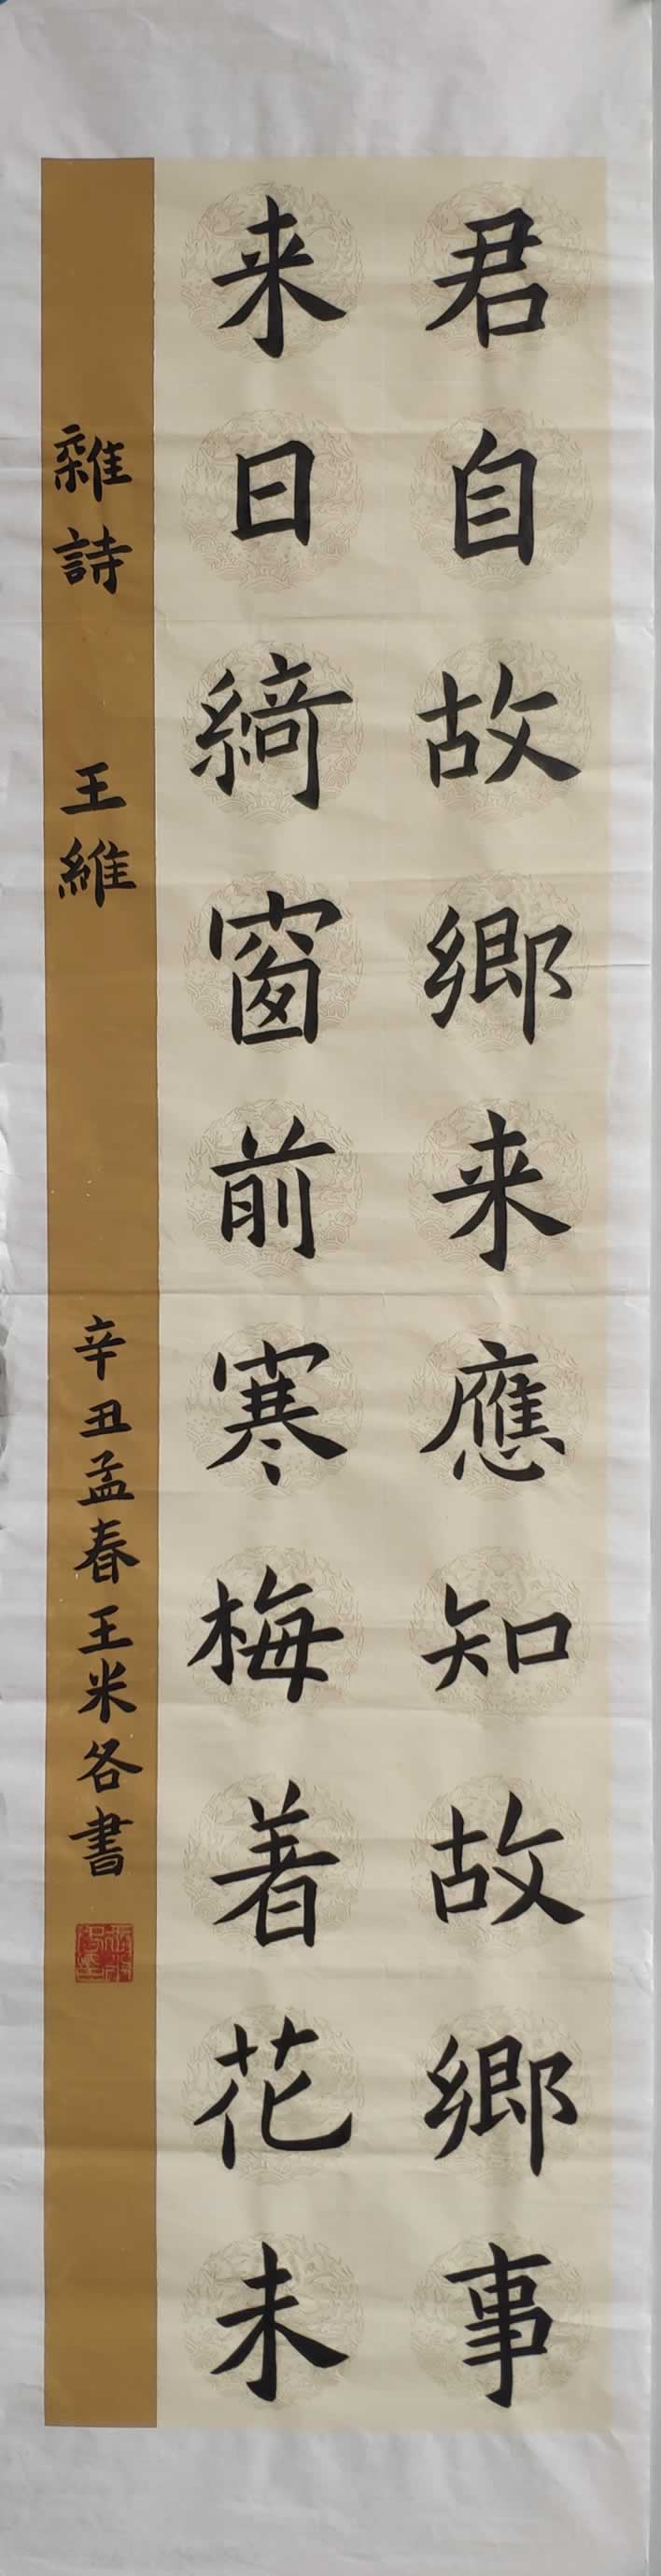 君自故鄉来應知故鄉事
来日綺窗前寒梅着花未
雜詩 王維 辛丑孟春王米各書